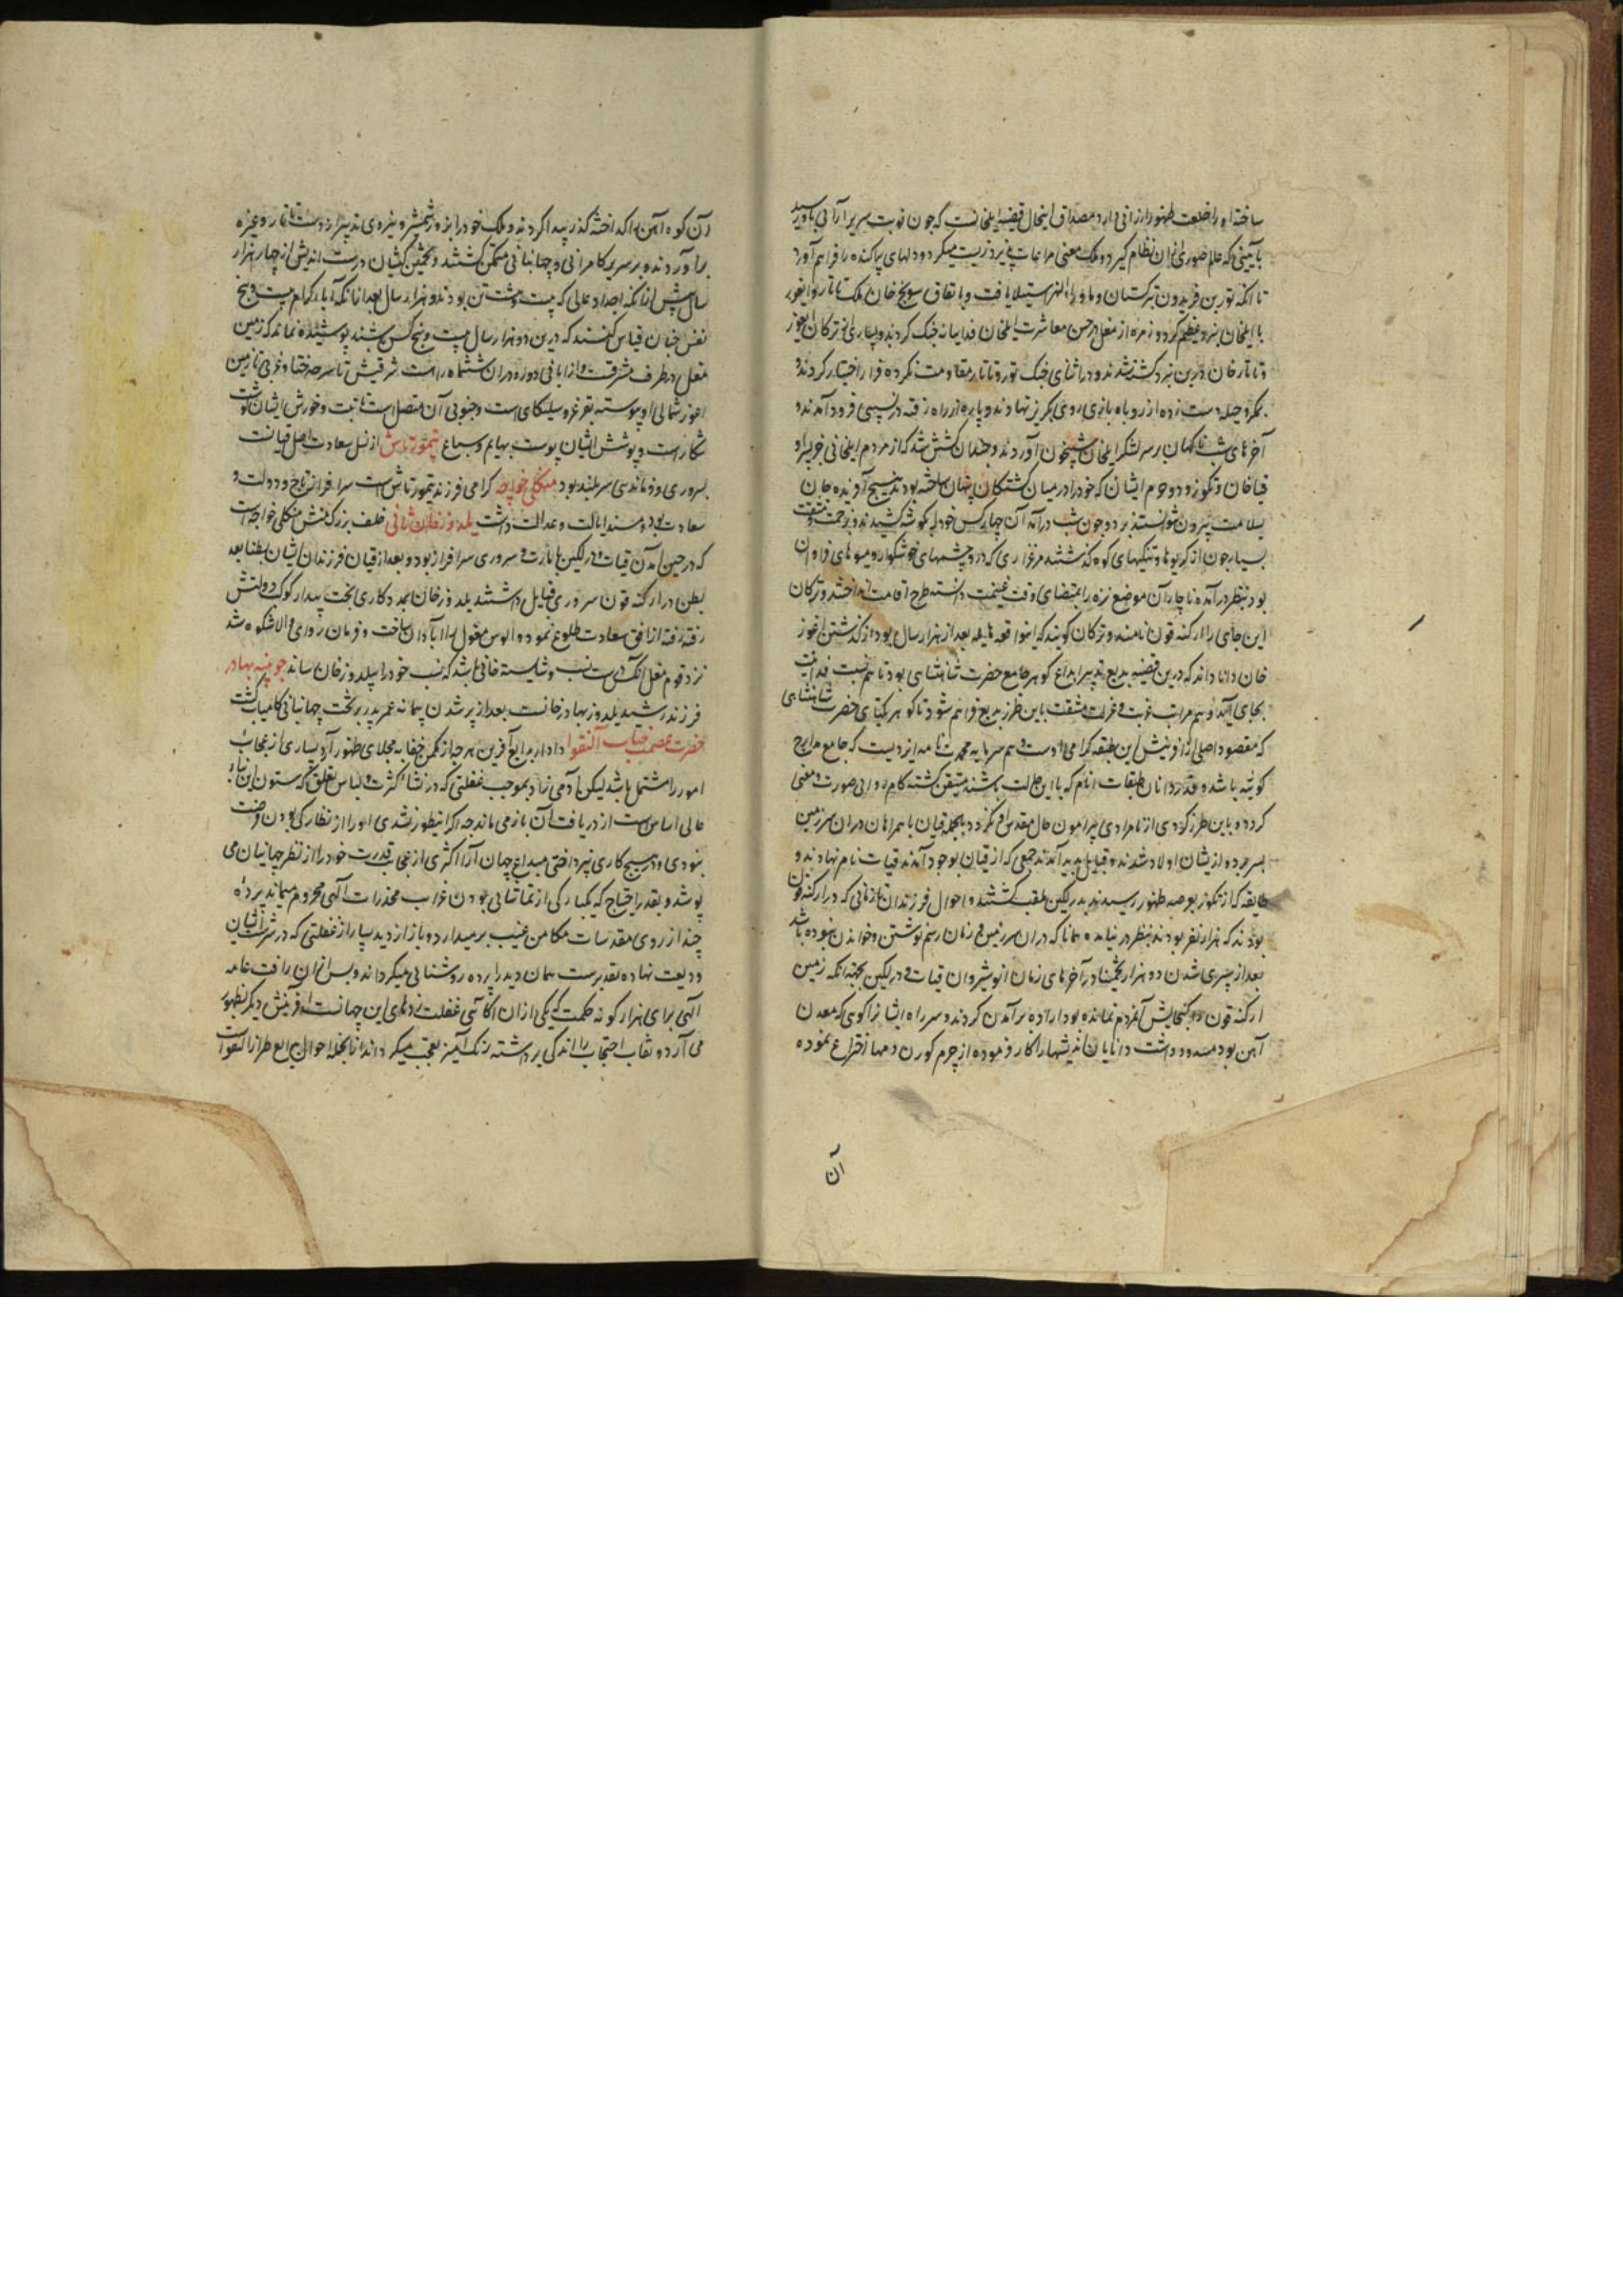 ساخته او را خلعت ظهور ارزانی دارد مصداق اینحال قضیه ایلخانست که چون نوبت سریر آرائی باو رسید
بآئینی که عالم صوری ازان نظام گیرد و ملک معنی مراعات پذیرد زیست میکرد و دلهای پراکنده را فراهم آورد
تا آنکه تور بن فریدون بر ترکستان و ماوراءالنهر استیلا یافت و باتفاق سونج خان ملک تاتار و ایغور
با ایلخان نبرد عظیم کرد و زمره از مغل از حسن معاشرت ایلخان فدایانه جنگ کردند و بسیاری از ترکان ایغور
و تاتار خان درین نبرد کشته شدند و در اثنای جنگ تور و تاتار مقاومت نکرده فرار اختیار کردند و
بمکر و حیله دست زده از روباه بازی روی بگریز نهادند و پاره از راه رفته در پسپی فرود آمدند و
آخرهای شب ناگهان بر سر لشکر ایلخان شبیخون آوردند و چندان کشش شد که از مردم ایلخانی جز پسر او
قیاخان و تکوز و دو حرم ایشان که خود را در میان کشتگان پنهان ساخته بودند هیچ آفریده جان
بسلامت بیرون نتوانستند برد و چون شب درآمد آن چهار کس خود را بگوشه کشیدند و بزحمت و مشقت
بسیار چون از کریوها و تنگیهای کوه گذشتند مرغزاری که درو چشمهای خوشگوار و میوهای فراوان
بود بنظر درآمد ناچار آن موضع نزه را بمقتضای وقت غنیمت دانسته طرح اقامت انداختند و ترکان
این جای را ارکنه قون نامند و ترکان گویند که این واقعه هایله بعد از هزار سال بود از گذشتن اغوز
خان دانا داند که درین قضیه بدیع تدبیر ابداع گوهر جامع حضرت شاهنشاهی بود تا هم نسبت فدائیت
بجای آید و هم مراتب غربت و عزلت و مشقت باین طرز بدیع فراهم شود تا گوهر یکتای حضرت شاهنشاهی
که مقصود اصلی از آفرینش این طبقه گرامی اوست و هم سرمایه محمدت نامه ایزدیست که جامع مدارج
کونیه باشد و قدردانان طبقات انام که با این حالت باشند متیقن گشته کام روای صورت و معنی
گردد و باین طرز گردی از نامرادی پیرامون حال مقدس او نگردد بالجمله قیان با همراهان دران سرزمین
بسر برد و ازیشان اولاد شدند و قبایل پدید آمدند جمعی که از قیان بوجود آمدند قیات نام نهادند و
طایفه که از تکوز بعرصه ظهور رسیدند بدرلکین ملقب گشتند و احوال فرزندان تا زمانی که در ارکنه قون
بودند که هزار نفر بودند بنظر در نیامده همانا که دران سرزمین و زمان رسم نوشتن و خواندن نبوده باشد
بعد از سپری شدن دو هزار سال تخمینا در آخرهای زمان انوشیروان قیات و درلکین بجهة آنکه زمین
ارکنه قون را گنجایش آنمردم نمانده بود اراده برآمدن کردند و سر راه ایشانرا کوهی که معدن
آهن بود مسدود داشت دانایان اندیشها را کار فرموده از چرم گوزن دمها اختراع نموده
آن
آن کوه آهن را گداخته گذر پیدا کردند و ملک خود را بزور شمشیر و نیروی تدبیر از دست تاتار و غیره
برآوردند و بر سریر کامرانی و جهانبانی متمکن گشتند و بتخمین کیشان درست اندیش از چهار هزار
سال پیش ازانکه اجداد عالی که بیست و هشت تن بودند و هزار سال بعد ازانکه آباء کرام بیست و پنج
نفس چنان قیاس کنند که درین دو هزار سال بیست و پنج کس باشند پوشیده نماند که زمین
مغل در طرف مشرقست و از آبادانی دور و دوران ششماه راه است شرقیش تا سرحد ختا و غربی تا زمین
ایغور شمالی او پیوسته بقرغز و سیلنکای است و جنوبی آن متصل است به تبت و خورش ایشان گوشت
شکار است و پوشش ایشان پوست بهایم و سباع تیمورتاش از نسل سعادت اصل قیانست
بسروری و فرماندهی سربلند بود منکلی خواجه گرامی فرزند تیمورتاش است سرافراز تاج و دولت و
سعادت بود و مسند ایالت و عدالت داشت یلدوز خان ثانی خلف بزرگ منش منکلی خواجه است
که در حین آمدن قیات و درلکین بامارت و سروری سرافراز بود و بعد از قیان فرزندان ایشان بطنا بعد
بطن در ارکنه قون سروری قبایل داشتند یلدوز خان بمددکاری بخت بیدار کوکب دولتش
رفته رفته از افق سعادت طلوع نمود و الوس مغول را آبادان ساخت و فرمان روای والاشکوه شد
نزد قوم مغل آنکس درست نسب و شایسته خانی باشد که نسب خود را بیلدوز خان رساند جوینه بهادر
فرزند رشید یلدوز خانست بعد از پر شدن پیمانه عمر پدر بر تخت جهانبانی کامیاب گشت
حضرت عصمت جناب آلنقوا دادار بدایع آفرین هرچه از مکمن خفا به مجلای ظهور آرد بسیاری از عجایب
امور را مشتمل باشد لیکن آدمی زاد بموجب غفلتی که در نشاء کثرت و لباس تعلق که ستون این بناء
عالی اساس است از دریافت آن باز می ماند چه اگر اینطور نشدی او را از نظارگی بودن فرصت
نبودی و بهیچ کاری نپرداختی مبدع جهان آرا اکثری از عجایب قدرت خود را از نظر جهانیان می
پوشد و بقدر احتیاج که یکبارگی از تماشائی بودن غرایب مخدرات الهی محروم نماند پرده
چند از روی مقدسات مکامن غیب برمیدارد و باز از دید بسیار از غفلتی که در سرشت ایشان
ودیعت نهاده بقدر پرست همان دید را پرده روشنائی میگرداند و پس ازان رافت عامه
الهی برای هزار گونه حکمت که یکی ازان آگاهی غفلت زدهای این جهانست آفرینش دیگر بظهور
می آرد و نقاب احتجاب را اندکی برداشته رنگ آمیز تعجب میگرداند ازانجمله احوال بدایع طراز آلنقوا است